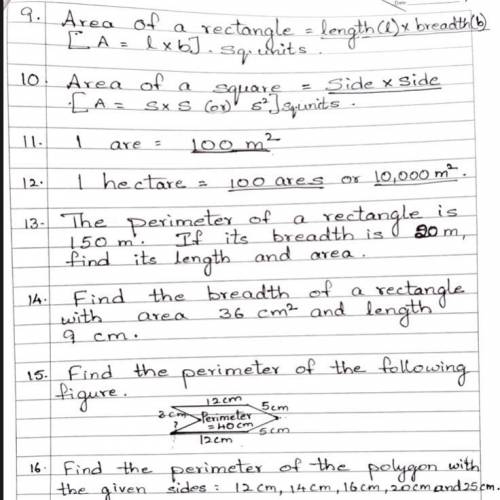 9. Area of a rectangle = length(l) x breadth(b)
[A = l x b]. Sq.units.
10. Area of a square = Side x Side
[A = S x S (or) S²] Squnits.
11. 1 are = 100 m²
12. 1 hectare = 100 ares or 10,000 m².
13. The perimeter of a rectangle is
150 m. If its breadth is 20 m,
find its length and area.
14. Find the breadth of a rectangle
with area 36 cm² and length
9 cm.
15. Find the perimeter of the following
figure.
12cm
3cm 5cm
Perimeter
? = 40cm
5cm
12cm
16. Find the perimeter of the polygon with
the given sides: 12cm, 14cm, 16cm, 20cm and 25cm.